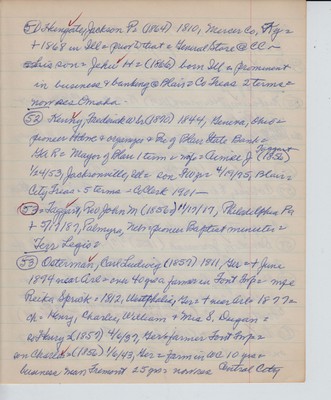 51) Hungate, Jackson P= (1864) 1810, Mercer Co, Ky=
+ 1868 in Ill = prior to that = General Store @ CC =
= his son = John H = (1865) born Ill = prominent
in business & banking @ Blair = Co Treas 2 terms =
now res. Omaha =
52) Kenny, Frederick W Sr (1870) 1844, Geneva, Ohio =
pioneer Hdwe & organizer & Pr of Blair State Bank =
GAR = Mayor of Blair 1 term = m/c = Aimee J Taggart (1856)
1/24/53, Jacksonville, = son FW Jr= 4/19/75, Blair =
City Treas = 5 terms = Co Clerk 1901 —
53) = Taggart, Rev John M (1856) 11/17/17, Philadelphia Pa
+ 5/1/87, Palmyra, Neb = pioneer Baptist minister =
Terr Legis =
53) Osterman, Carl Ludwig (1857) 1811, Ger = + June
1894 near Arl = over 40 yrs a farmer in Font Grp = m/c
Rieka Sprick = 1812, Westphalia, Ger + near Arl = 1877 =
ch = Henry, Charles, William & Mrs S. Dugan =
= Henry L (1857) 4/6/37, Ger = farmer Font GC =
son Charles = (1856) 1/6/43, Ger = farm in WC 10 yrs =
business near Fremont 25 yrs = now res Central City